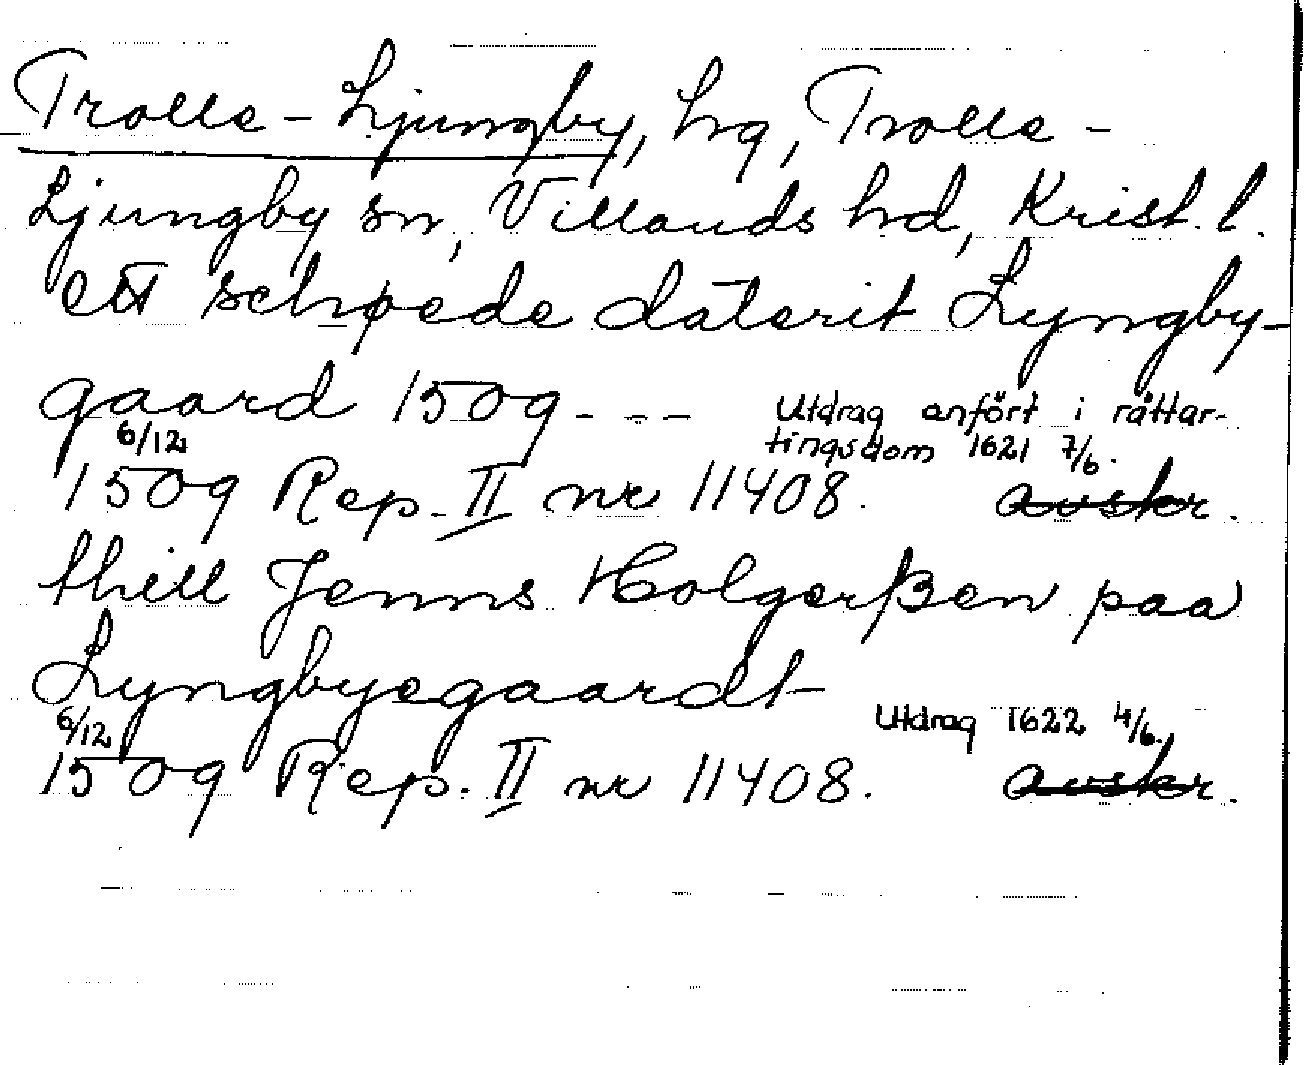 Trolle-Ljungby, hg, Trolle-
Ljungby sn, Villands hd, Krist. l.
ett schøede daterit Lyngby-
gaard 1509 - - -
Utdrag anfört i råttar-
tingsdom 1621 7/6.
6/12
1509 Rep. II nr 11408. avskr.
thill Jenns Holgerßen paa
Lyngbyegaardt
Utdrag 1622 4/6.
6/12
1509 Rep. II nr 11408. avskr.